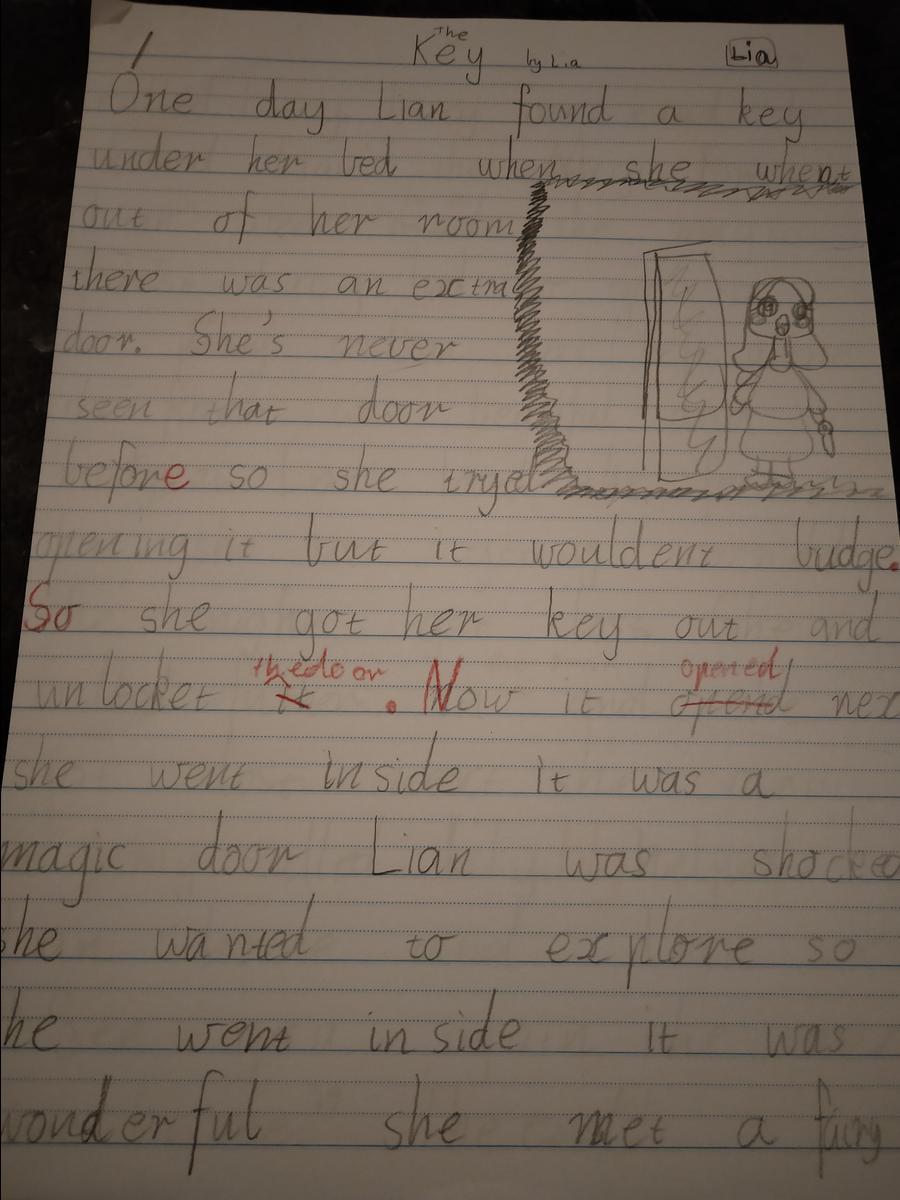 The
Key by Lia Lia
One day Lian found a key
under her bed when she when't
out of her room
there was an extra
door. She's never
seen that door
before so she tryed
opening it but it wouldent budge.
So she got her key out and
thedoor opened
unlocket it . Now it opend nex
she went inside it was a
magic door Lian was shocked
she wanted to explore so
he went inside it was
wonderful she met a fairy